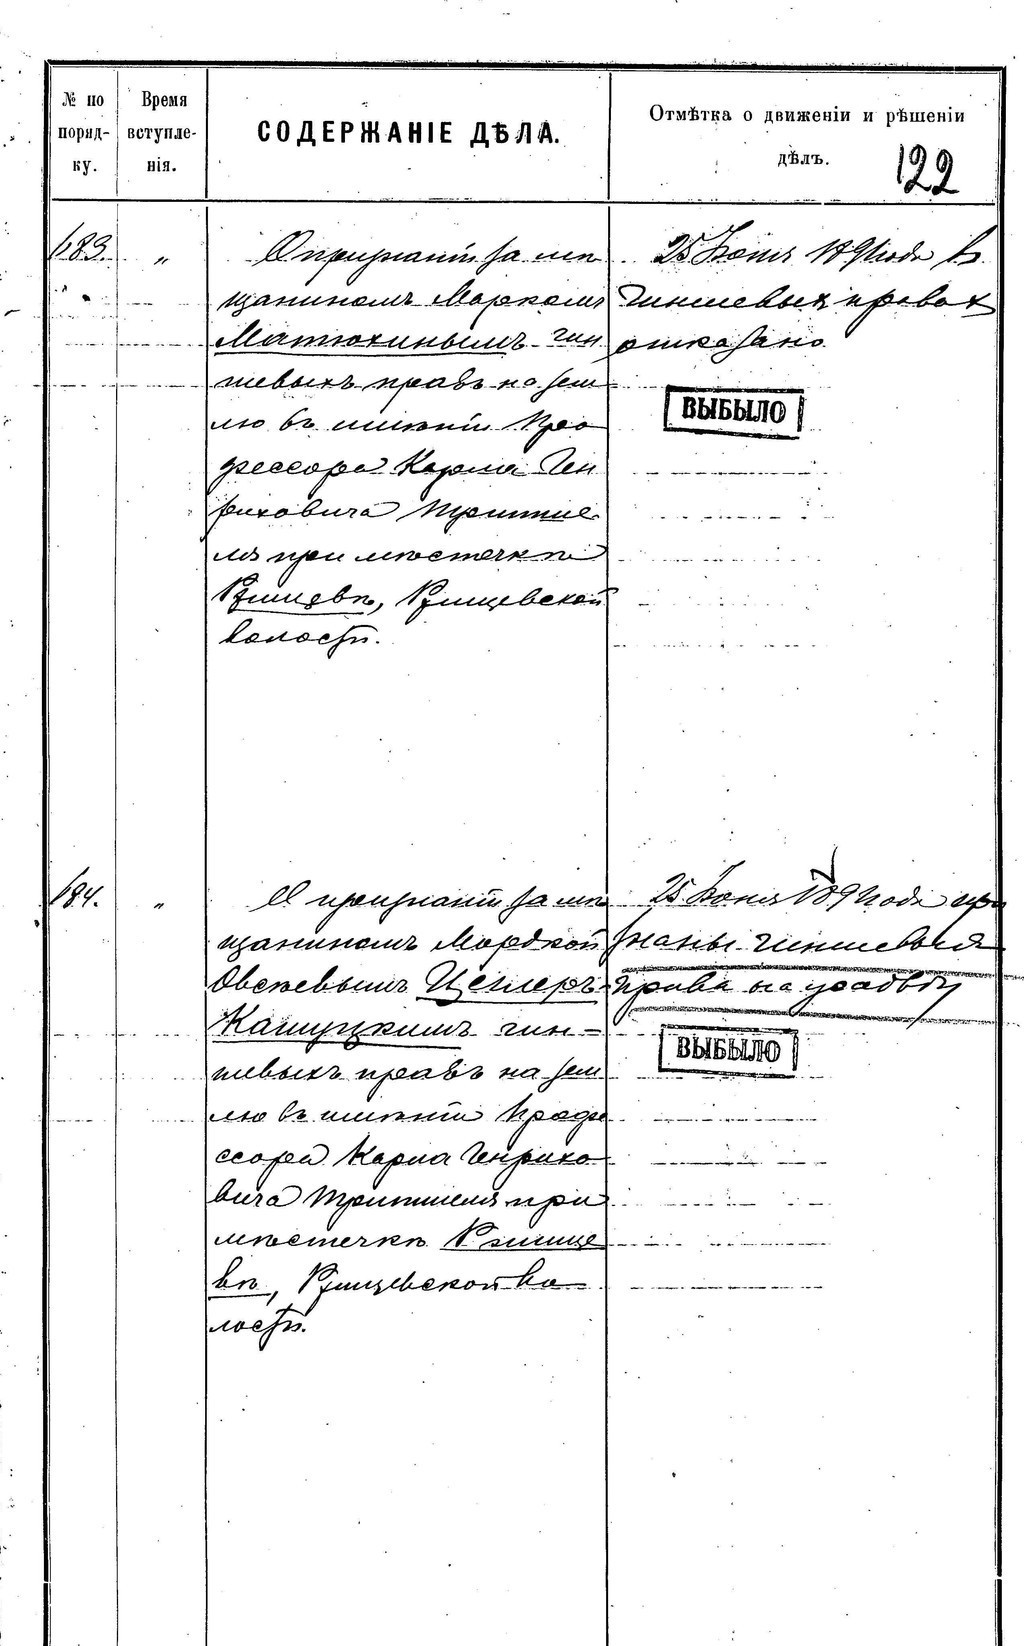 № по поряд-ку.
Время вступле-нія.
СОДЕРЖАНІЕ ДѢЛА.
Отмѣтка о движеніи и рѣшеніи дѣлъ.
122
683.
"
О признаніи за мѣ
щаниномъ Маркомъ
Матюхинымъ чин
шевыхъ правъ на зем
лю въ имѣніи Про
фессора Карла Ген
риховича Тритше
ля при мѣстечкѣ
Ржищевѣ, Ржищевской
волости.
25 Іюня 1891 года въ
чиншевыхъ правах
отказано
ВЫБЫЛО
684.
"
О признаніи за мѣ
щаниномъ Мордкой
Овсѣевымъ
Кашуцкимъ чин=
шевыхъ правъ на зем
лю въ имѣніи Профе
ссора Карла Генрихо
вича Тритшеля при
мѣстечкѣ Ржище
вѣ, Ржищевской во
лости.
25 Іюня 1891 года при
знаны чиншевыя
права на усадьбу
ВЫБЫЛО